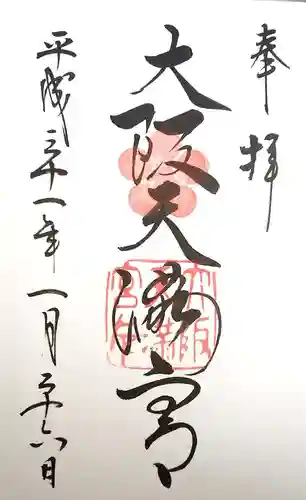 奉拝
大阪天満宮
平成三十一年一月二十六日